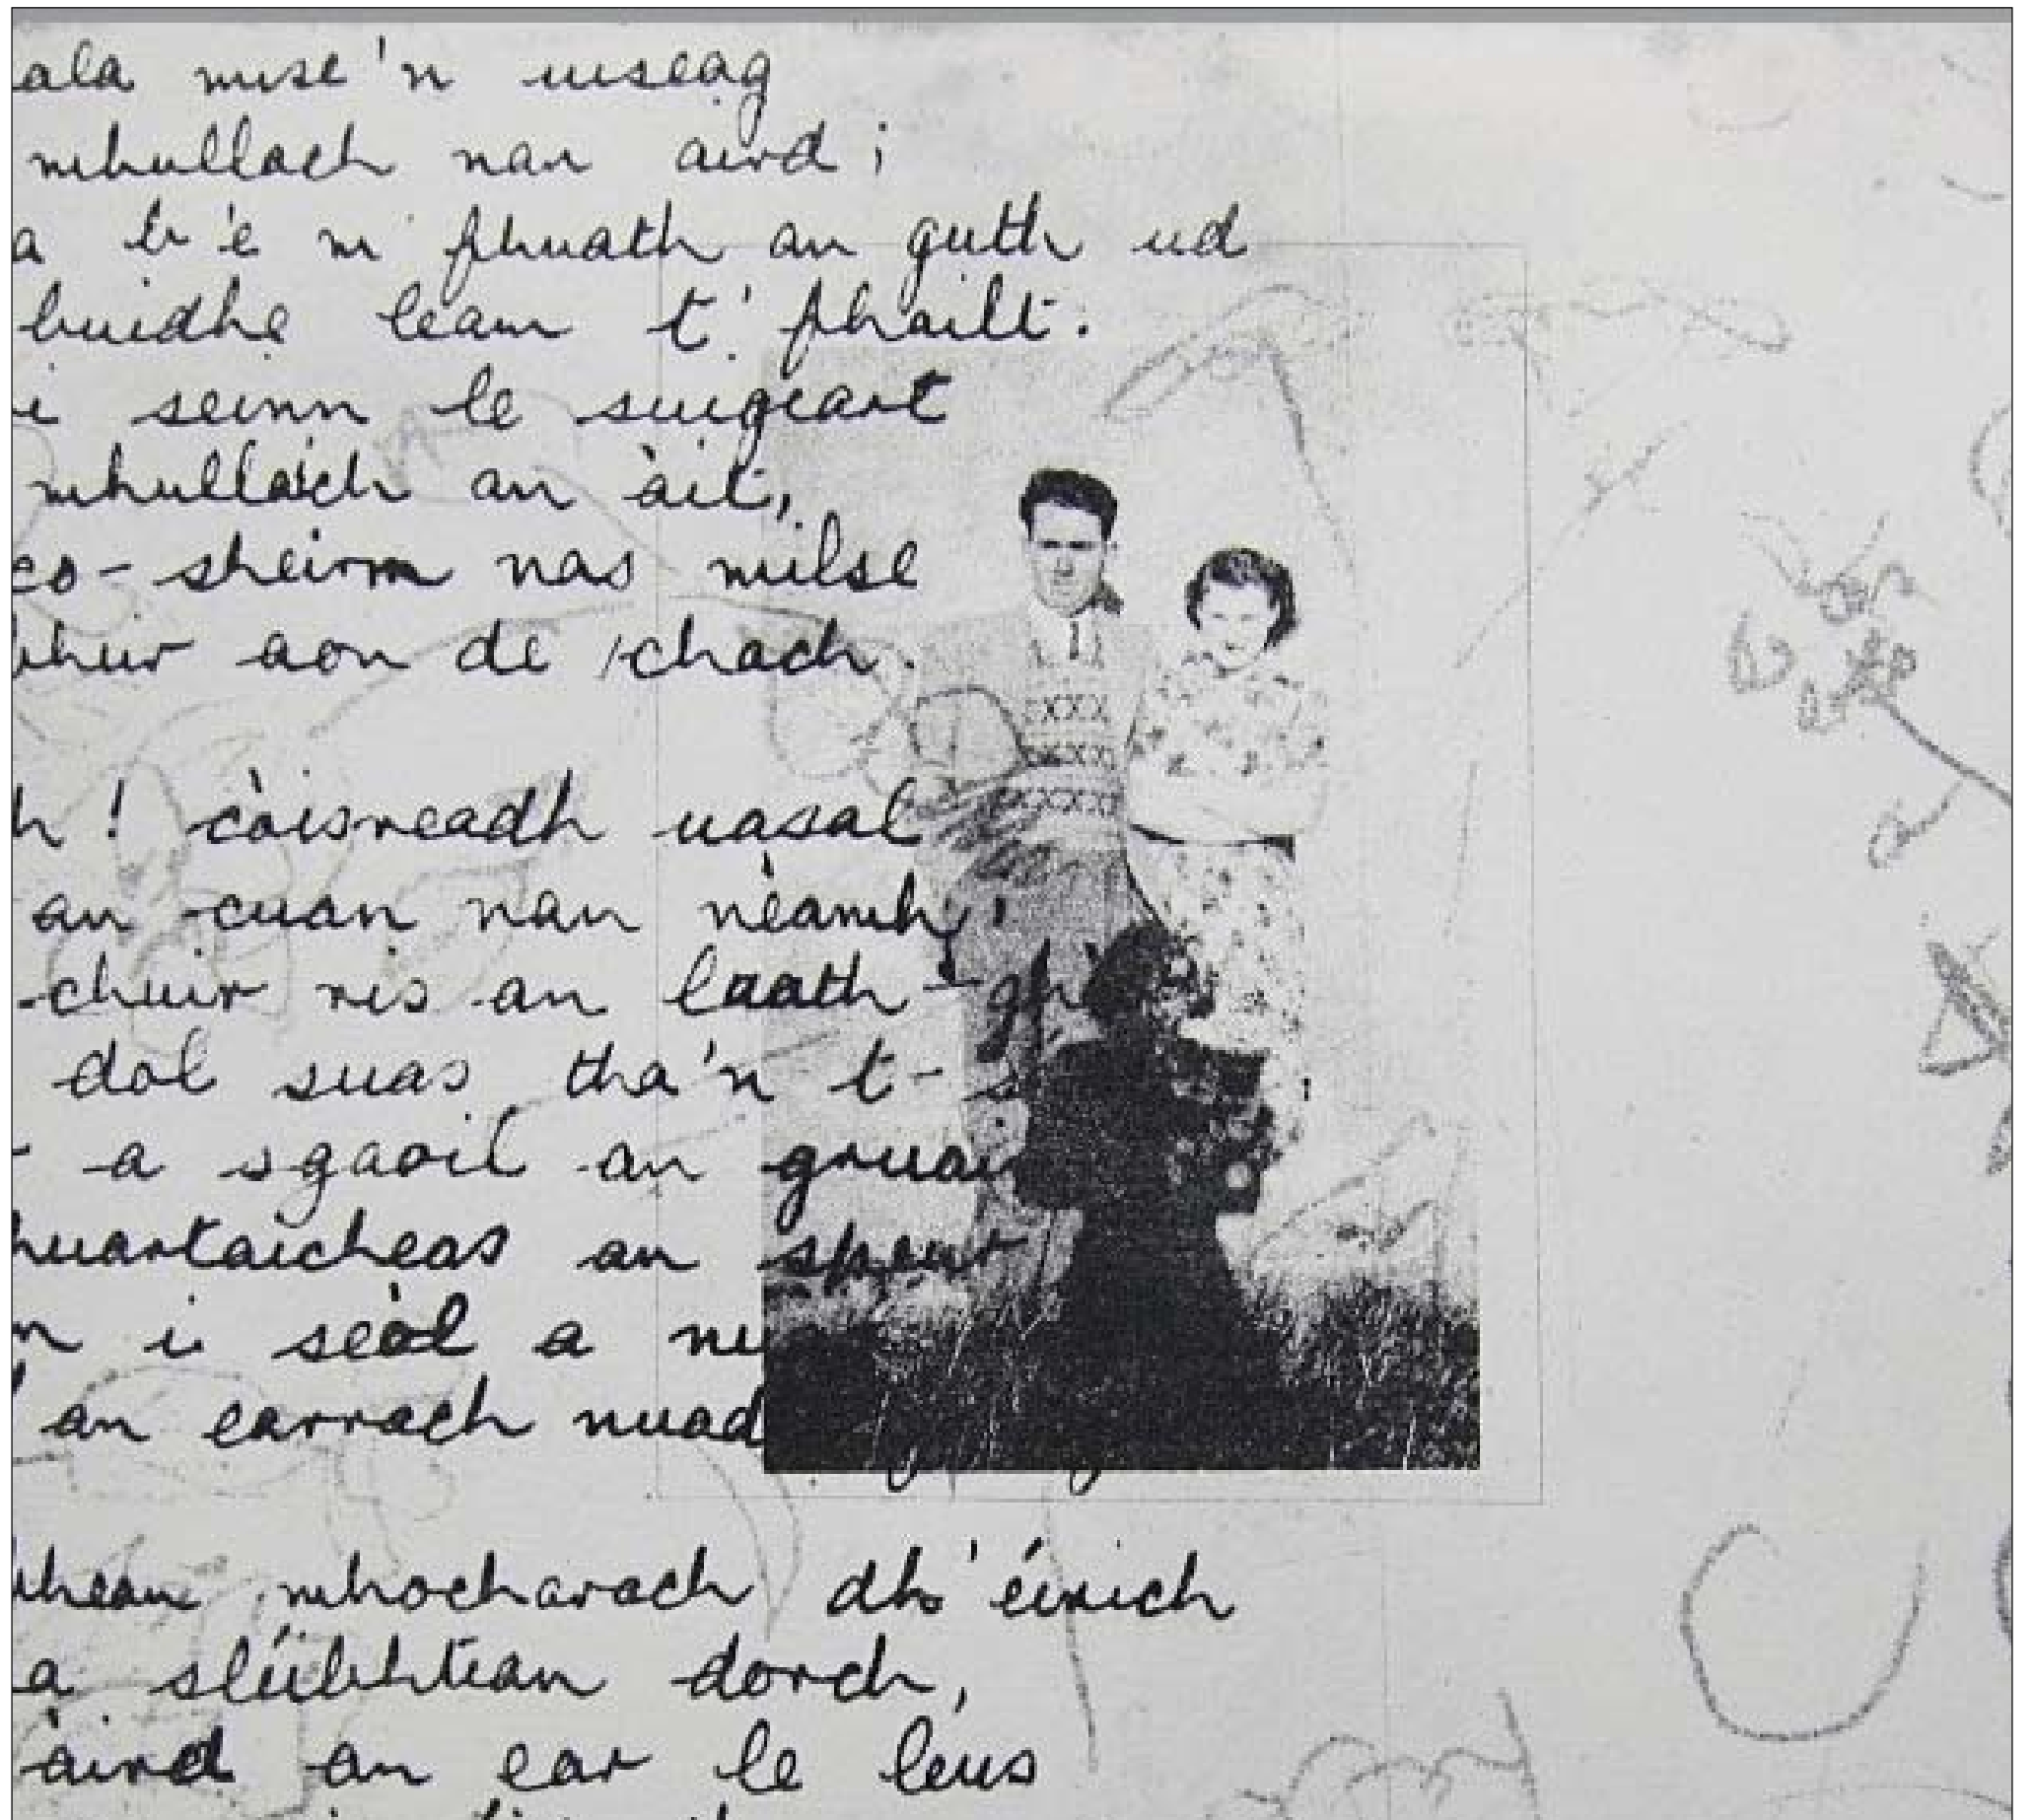 ala mise 'n uiseag
mhullach nan aird;
a b'e m' fhuath an guth ud
buidhe leam t' fhailt.
i seinn le suigeart
mhullaich an àit,
co-sheirm nas milse
bheir aon de chach.
h! còisreadh uasal
an cuan nan nèamh,
chuir ris an luath-gh
dol suas tha'n t-s
a sgaoil an gruai
huartaicheas an speur
m i seòl a nu
an earrach nuad
bheau mhocharach dh' éirich
a sléibhtean dorch,
àird an ear le leus